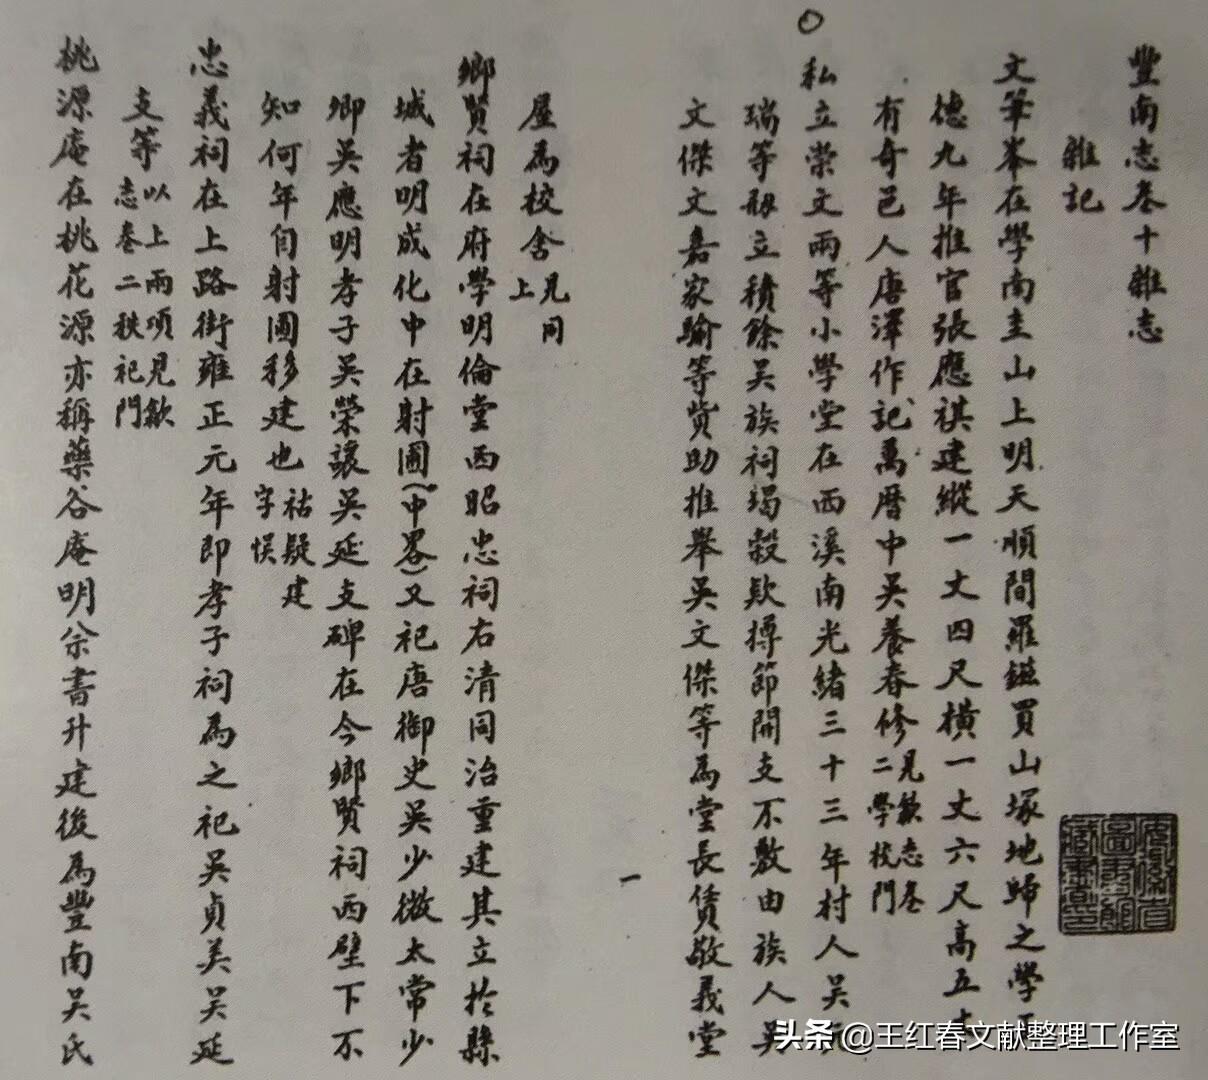 豐南志卷十雜志
雜記
文筆峯在學南圭山上明天順間羅鎡買山塚地歸之學
德九年推官張應祺建縱一丈四尺橫一丈六尺高五
有奇邑人唐澤作記萬曆中吳養春修見歙志卷二學校門
○私立崇文兩等小學堂在西溪南光緒三十三年村人吳
瑞等剏立積餘吳族祠塲穀欵撙節開支不敷由族人吳
文傑文嘉家駼等貲助推舉吳文傑等為堂長賃敬義堂
一
屋為校舍見同上
鄉賢祠在府學明倫堂西昭忠祠右清同治重建其立於縣
城者明成化中在射圃(中畧)又祀唐御史吳少微太常少
卿吳應明孝子吳榮讓吳延支碑在今鄉賢祠西壁下不
知何年自射圃移建也祜疑建字悞
忠義祠在上路街雍正元年即孝子祠為之祀吳貞美吳延
支等以上兩項見歙志卷二秩祀門
桃源庵在桃花源亦稱藥谷庵明佘書升建後為豐南吳氏
头条 @王红春文献整理工作室